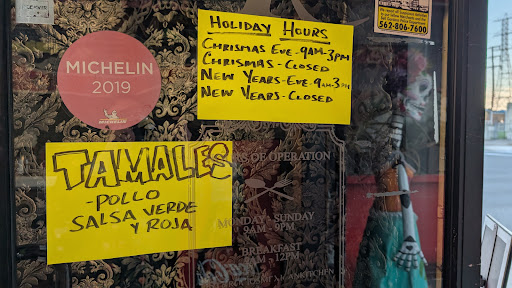 HOLIDAY HOURS
CHRISMAS EVE-9AM-3PM
CHRISMAS-CLOSED
NEW YEARS-EVE-9AM-3PM
NEW YEARS-CLOSED
562-806-7600
MICHELIN
2019
TAMALES
-POLLO
SALSA VERDE
Y ROJA
OF OPERATION
MONDAY - SUNDAY
9AM - 9PM
BREAKFAST
9AM - 12PM